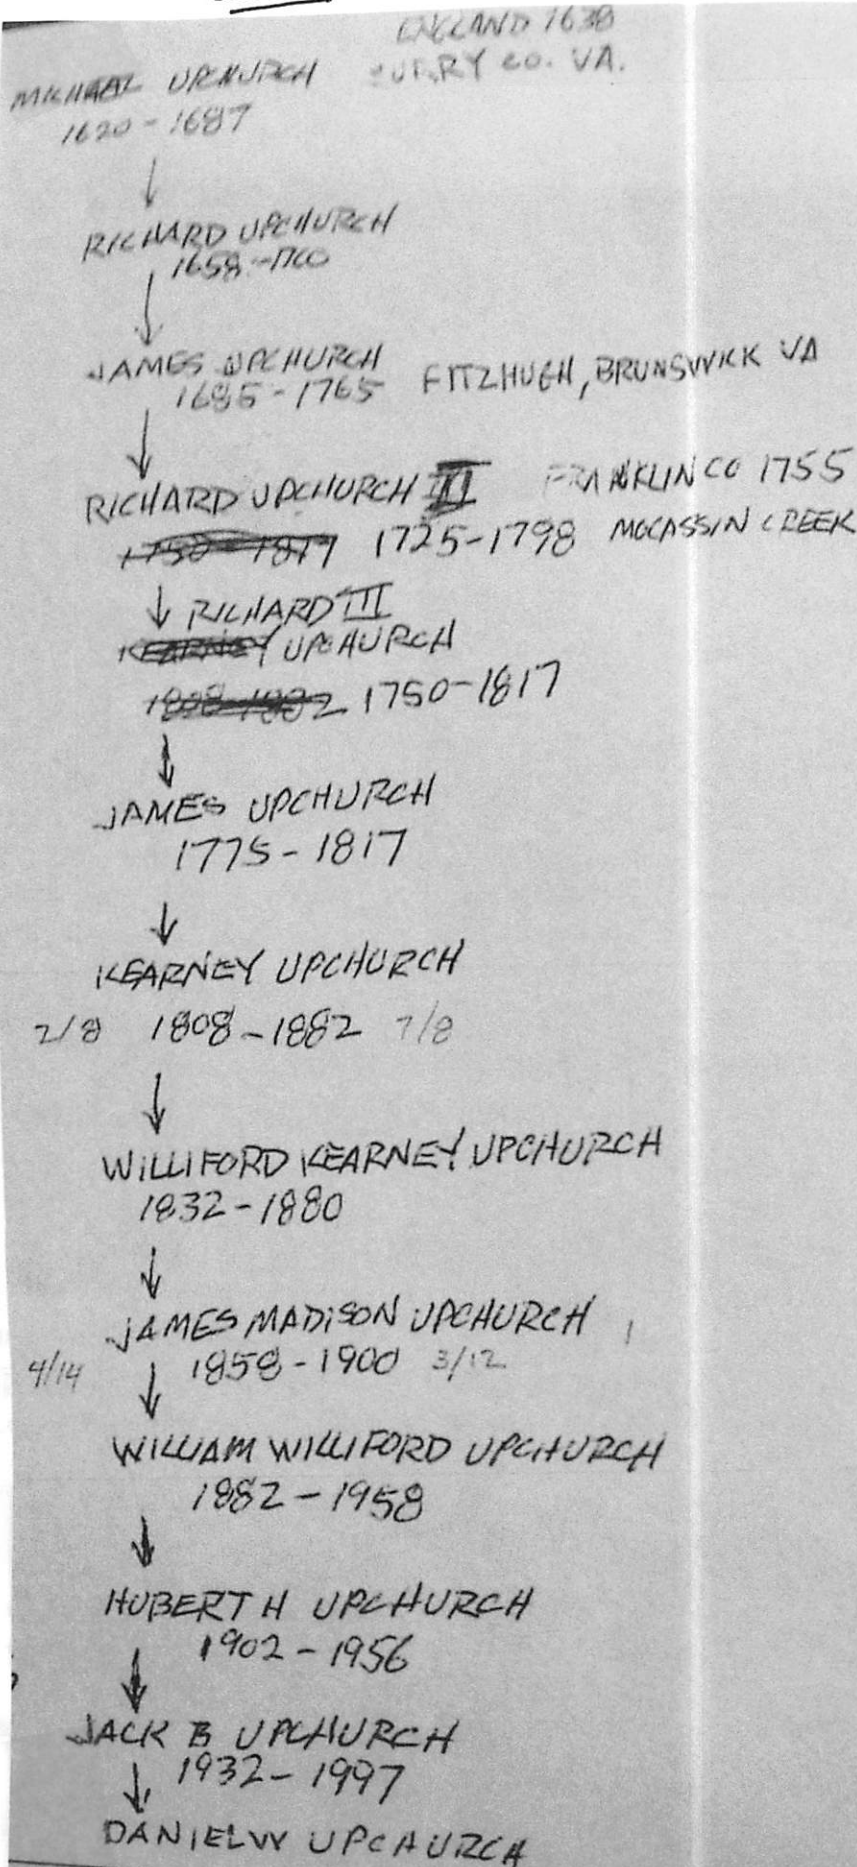 ENGLAND 1638
MICHAEL UPCHURCH SURRY CO. VA.
1620-1687
↓
RICHARD UPCHURCH
1658-1700
↓
JAMES UPCHURCH FITZHUGH, BRUNSWICK VA
1685-1765
↓
RICHARD UPCHURCH III FRANKLIN CO 1755
1750-1817 1725-1798 MOCASSIN CREEK
↓ RICHARD III
KEARNEY UPCHURCH
1808-1882 1750-1817
↓
JAMES UPCHURCH
1775-1817
↓
KEARNEY UPCHURCH
2/8 1808-1882 7/8
↓
WILLIFORD KEARNEY UPCHURCH
1832-1880
↓
JAMES MADISON UPCHURCH
4/14 1858-1900 3/12
↓
WILLIAM WILLIFORD UPCHURCH
1882-1958
↓
HUBERT H UPCHURCH
1902-1956
↓
JACK B UPCHURCH
1932-1997
↓
DANIEL W UPCHURCH